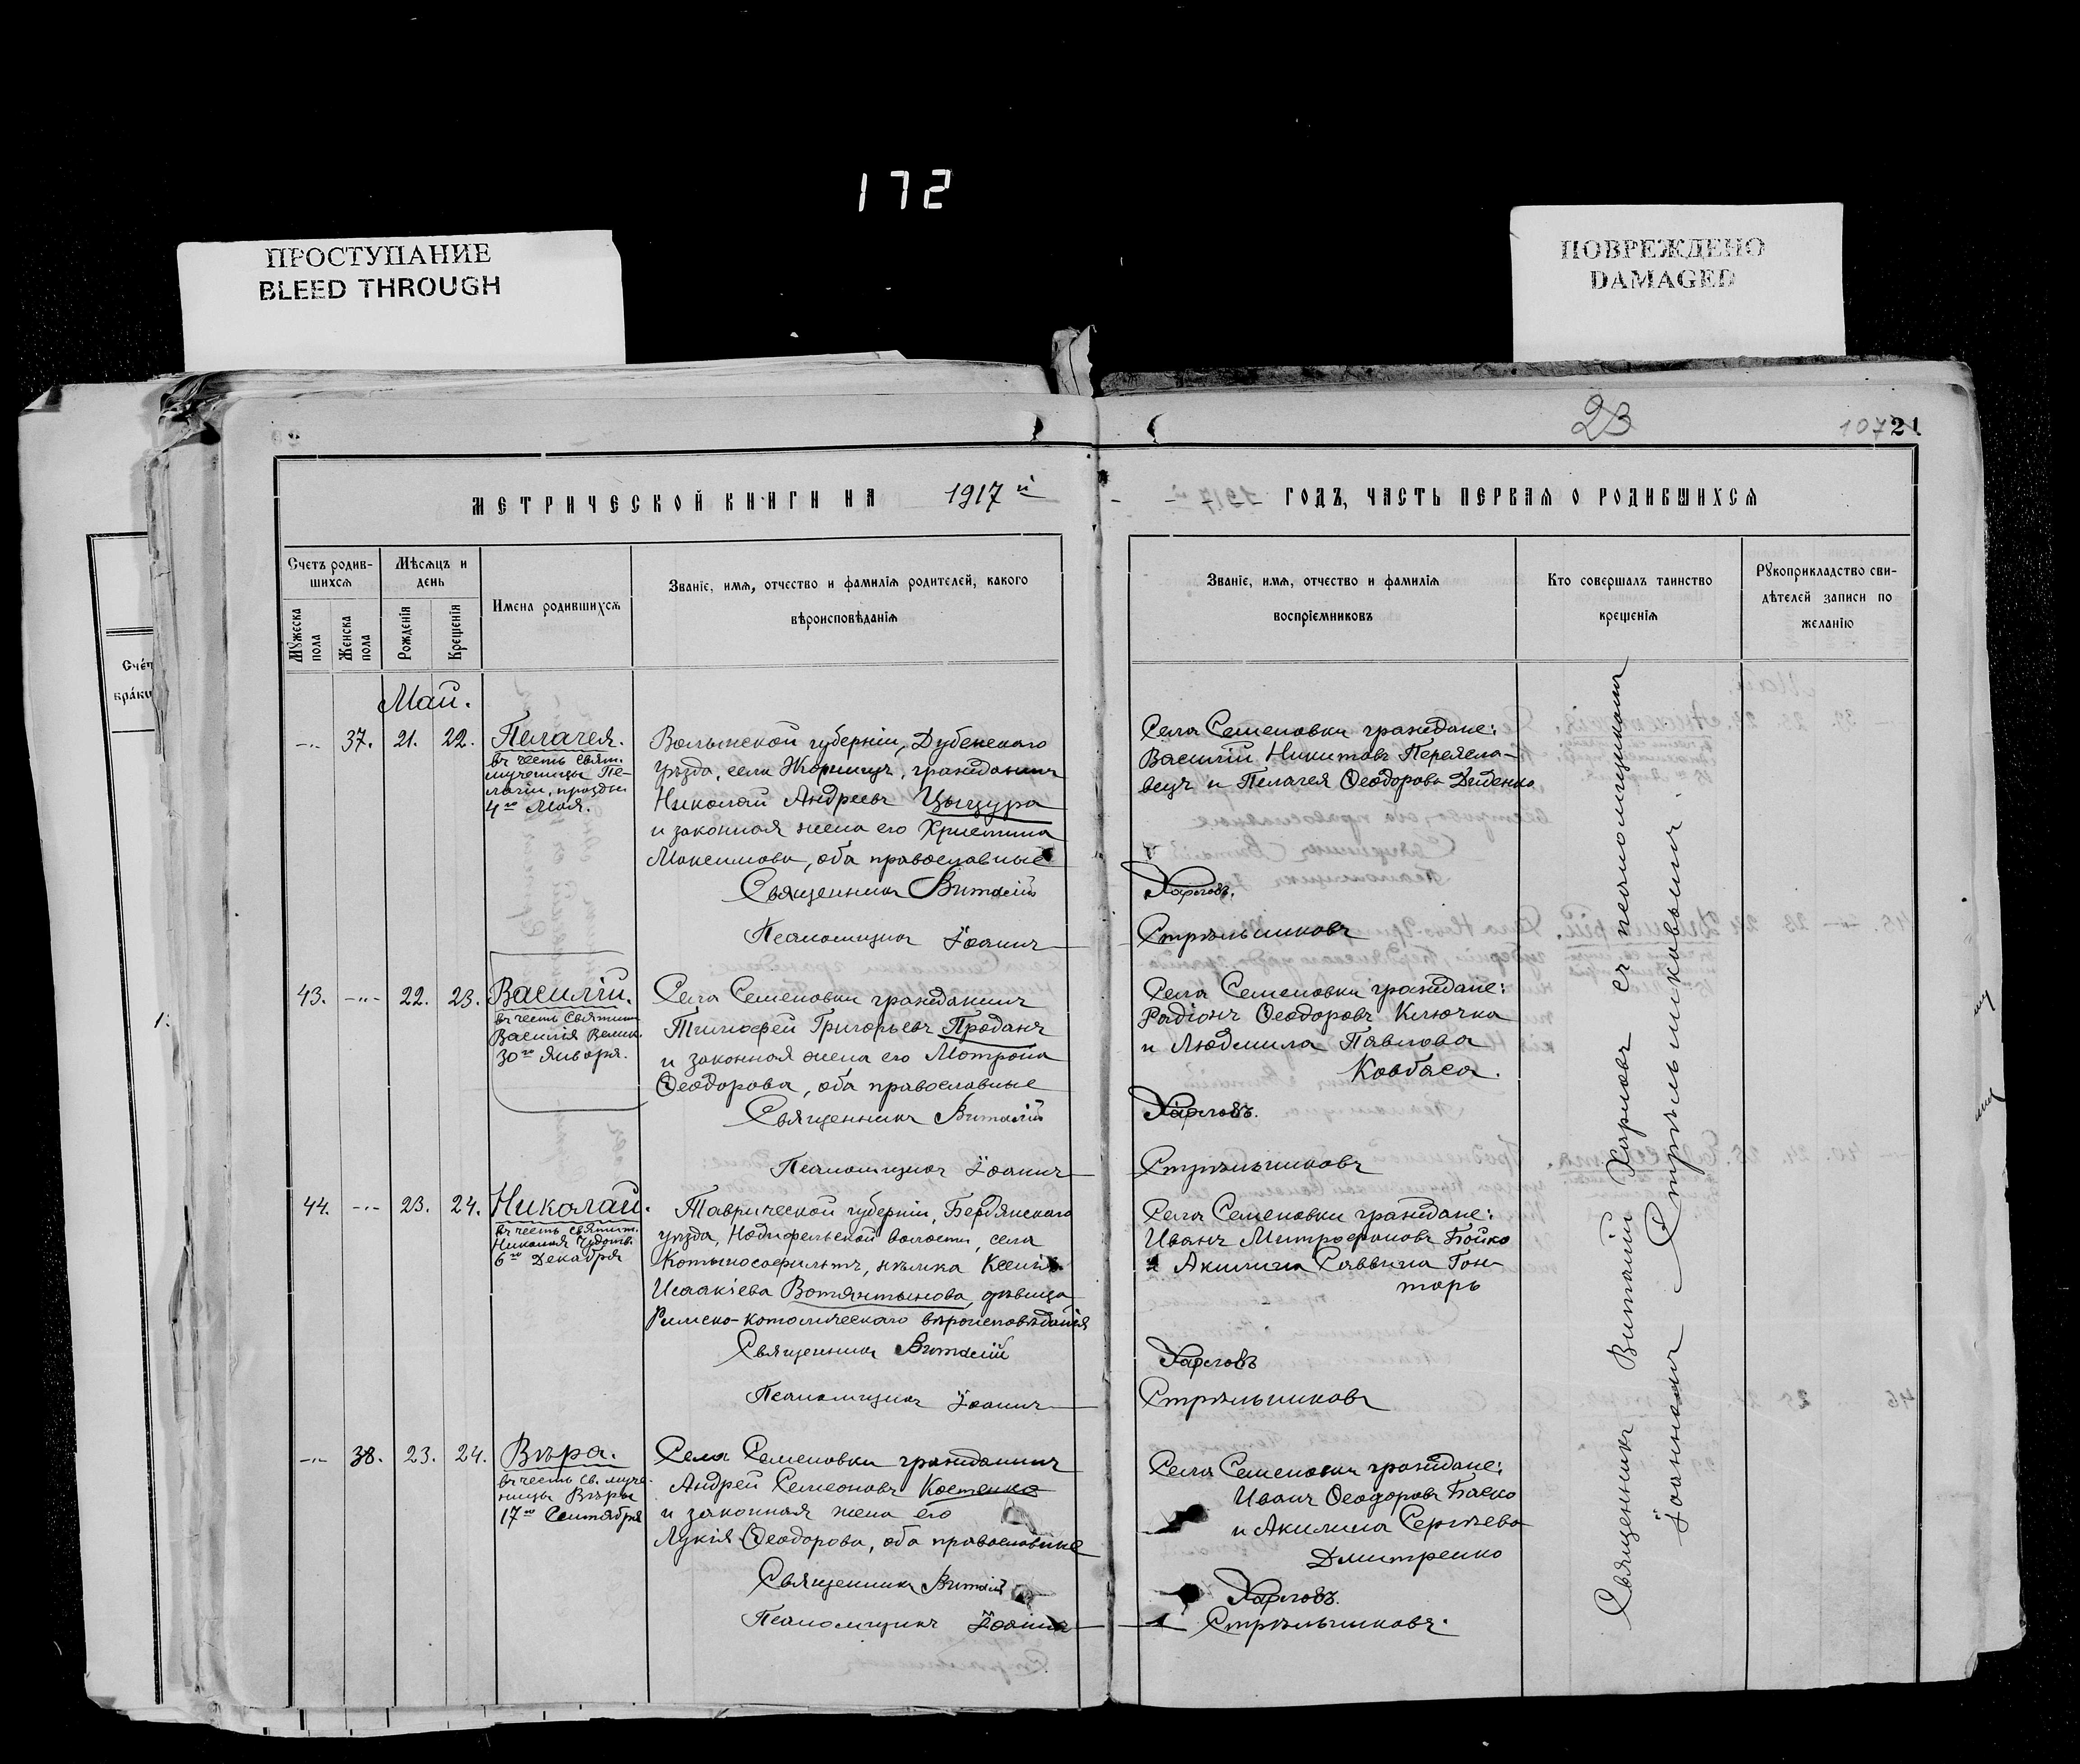 172
ПРОСТУПАНИЕ
BLEED THROUGH
ПОВРЕЖДЕНО
DAMAGED
23
107 21
МЕТРИЧЕСКОЙ КНИГИ НА 1917й
ГОДЪ, ЧАСТЬ ПЕРВАЯ О РОДИВШИХСЯ
Счетъ родив-
шихся
Мужеска
пола
Женска
пола
Мѣсяцъ и
день
Рожденія
Крещенія
Имена родившихся
Званіе, имя, отчество и фамилія родителей, какого
вѣроисповѣданія
Званіе, имя, отчество и фамилія
воспріемниковъ
Кто совершалъ таинство
крещенія
Рукоприкладство сви-
дѣтелей записи по
желанію
Май.
-"- 37. 21. 22. Пелагея.
въ честь свят.
мученицы Пе-
лагіи, праздн.
4го Мая.
Волынской губерніи, Дубенскаго
уѣзда, села гражданинъ
Николай Андреевъ Цыцура
и законная жена его Христина
Максимова, оба православные
Священникъ Виталій
Псаломщикъ Іоаннъ
Села Семеновки граждане:
Василій Никитовъ Переясла-
вецъ и Пелагея Ѳеодорова Диденко
Харловъ.
Стрѣльниковъ
43. -"- 22. 23. Василій.
въ честь Святит.
Василія Велик.
30го Января.
Села Семеновки гражданинъ
Тимофей Григорьевъ Проданъ
и законная жена его Мотрона
Ѳеодорова, оба православные
Священникъ Виталій
Псаломщикъ Іоаннъ
Села Семеновки граждане:
Радіонъ Ѳеодоровъ Ключка
и Людмила Павлова
Ковбаса.
Харловъ.
Стрѣльниковъ
44. -"- 23. 24. Николай.
въ честь святит.
Николая Чудотв.
6го Декабря
Таврической губерніи, Бердянскаго
уѣзда, волости, села
нѣмка Ксенія
Исаакіева дѣвица
Римско-католическаго вѣроисповѣданія
Священникъ Виталій
Псаломщикъ Іоаннъ
Села Семеновки граждане:
Иванъ Митрофановъ Бойко
и Акилина Саввина Гон-
тарь
Харловъ
Стрѣльниковъ
-"- 38. 23. 24. Вѣра.
въ честь св. муче-
ницы Вѣры
17го Сентября
Села Семеновки гражданинъ
Андрей Семеоновъ Костенко
и законная жена его
Лукія Ѳеодорова, оба православные
Священникъ Виталій
Псаломщикъ Іоаннъ
Села Семеновки граждане:
Иванъ Ѳеодоровъ Баско
и Акилина Сергѣева
Дмитренко
Харловъ.
Стрѣльниковъ.
Священникъ Виталій Харловъ съ псаломщикомъ
Іоанномъ Стрѣльниковымъ.